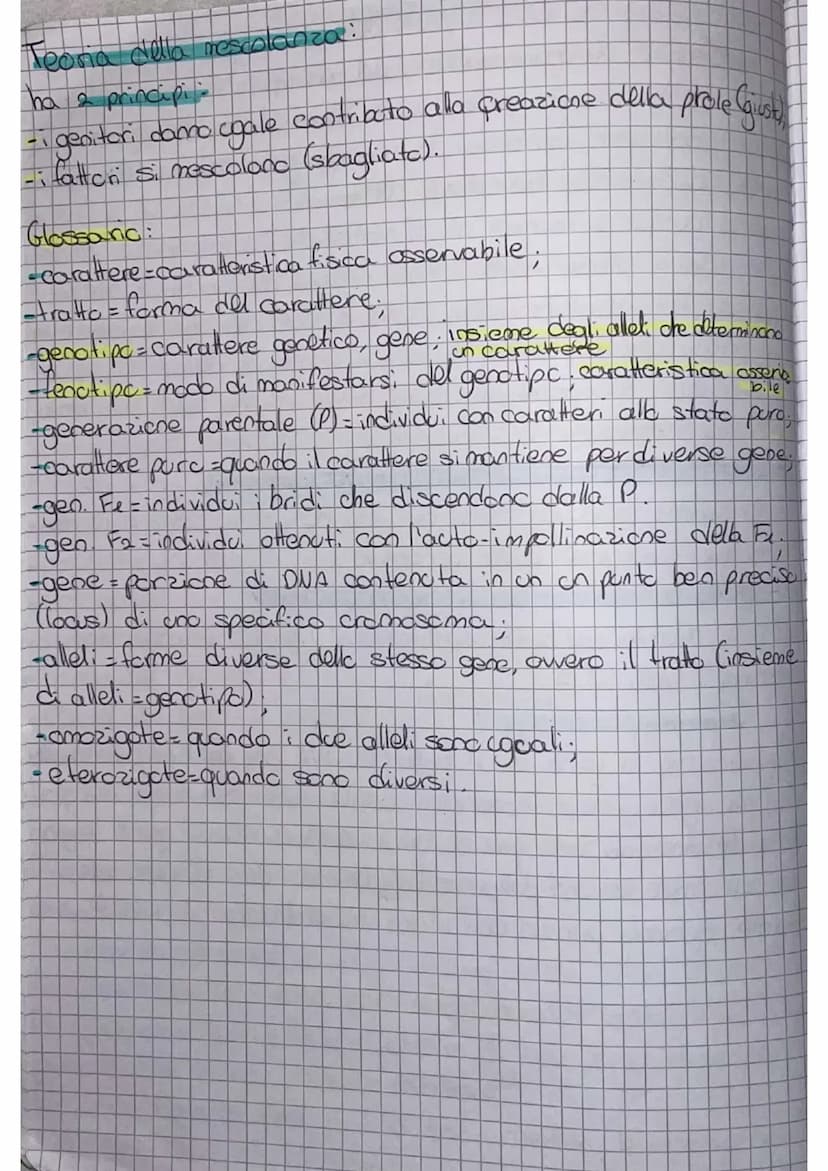 Teoria della mescolanza:
ha 2 principi:
-i genitori danno uguale contributo alla creazione della prole (giusto),
-i fattori si mescolano (sbagliato).
Glossario:
-carattere=caratteristica fisica osservabile;
-tratto=forma del carattere;
-genotipo=carattere genetico, gene; insieme degli alleli che determinano
un carattere
-fenotipo=modo di manifestarsi del genotipo; caratteristica osserva
bile
-generazione parentale (P)=individui con caratteri allo stato puro;
-carattere puro=quando il carattere si mantiene per diverse gene;
-gen. F1=individui ibridi che discendono dalla P.
-gen. F2=individui ottenuti con l'auto-impollinazione della F1.
-gene=porzione di DNA contenuta in un un punto ben preciso
(locus) di uno specifico cromosoma;
-alleli=forme diverse dello stesso gene, ovvero il tratto (insieme
di alleli=genotipo);
-omozigote=quando i due alleli sono uguali;
-eterozigote=quando sono diversi.